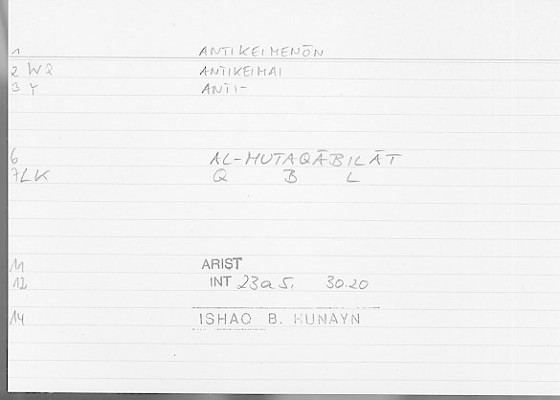 1 ANTIKEIMENŌN
2 WQ ANTIKEIMAI
3 Y ANTI-
6 AL-MUTAQĀBILĀT
7LK Q B L
11 ARIST
12 INT 23a5, 30.20
14 ISHAQ B. HUNAYN